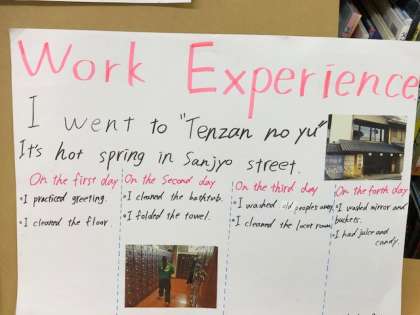 Work Experience
I went to "Tenzan no yu"
It's hot spring in Sanjyo street.
On the first day
• I practiced greeting.
• I cleaned the floor.
On the Second day
• I cleaned the bathtub.
• I folded the towel.
On the third day
• I washed old peoples
• I cleaned the locer room.
On the forth day
• I washed mirror and
buckets.
• I had juice and
candy.